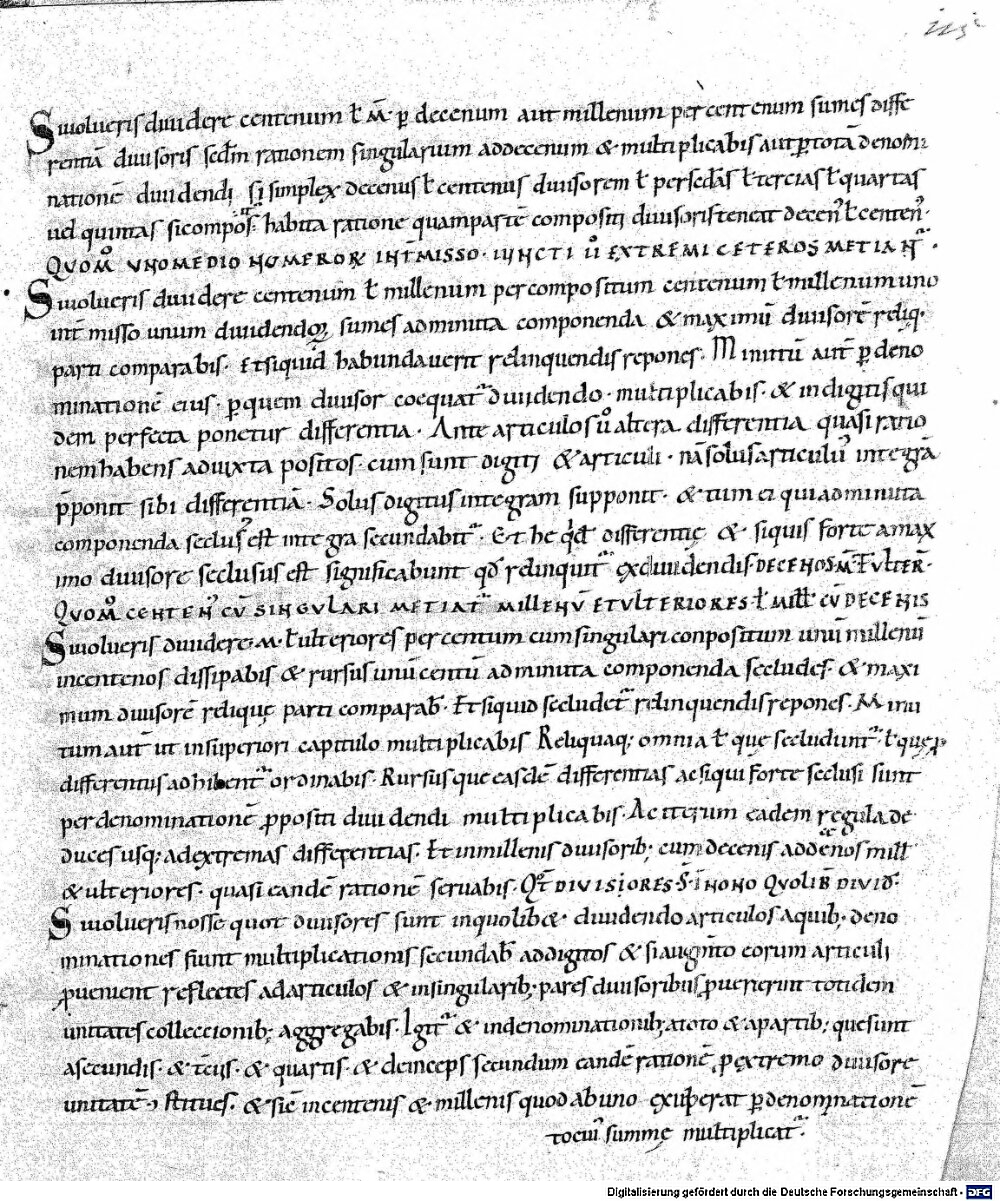 iiij
Si uolueris diuidere centenum ł M̄. ꝑ decenum aut millenum per centenum sumes diffe
rentiā diuisoris scdm̄ rationem singularium addecenum & multiplicabis aut ꝑtotā denomi
nationē diuidendi si simplex decenus ł centenus diuisorem ł persecd̄as ł tercias ł quartas
uel quintas si compos̄ habita ratione quam partē compositi diuisoris teneat decen᷒ ł centen᷒.
QVOM̊ VNO MEDIO NUMEROR̄ INT̄MISSO. IUNCTI ů EXTREMI CETEROS METIANT̃.
Si uolueris diuidere centenum ł millenum per compositum centenum ł millenum uno
int̄misso unum diuidendoꝝ sumes ad minuta componenda & maximū diuisorē reliq.
parti comparabis. Et siquid habundauerit relinquendis repones. Minutū aut̄ ꝑ deno
minationē eius. ꝑquem diuisor coequat̃ diuidendo. multiplicabis. & in digitis qui
dem perfecta ponetur differentia. Ante articulos ů altera differentia quasi ratio
nem habens ad iuxta positos. cum sunt digiti & articuli. nā solus articulus integrā
p̄ponit sibi differentiā. Solus digitus integram supponit. & tum ei qui ad minuta
componenda seclus᷒ est integra secundabit̃. Et he qd̄ differentię & siquis forte a max
imo diuisore seclusus est significabunt qd̄ relinquit̃ ex diuidendis. DECENOS M̄ & ULTER̄.
QVOM̊ CENTEN᷒ CŪ SINGULARI METIAT̃ MILLENŪ ET ULTERIORES. ł Mill̄ CŪ DECENIS
Si uolueris diuidere. M. ł ulteriores per centum cum singulari conpositum unū millenū
in centenos dissipabis & rursus unū centū ad minuta componenda secludes. & maxi
mum diuisorē relique parti comparab̄. Et siquid secludet̃ relinquendis repones. Minu
tum aut̄ ut in superiori capitulo multiplicabis Reliquaq; omnia ł que secludunt̃. ł que ꝓ
differentiis adhibent̃ ordinabis. Rursusque easdē differentias ac siqui forte seclusi sunt
per denominationē ꝓpositi diuidendi multiplicabis. Ac iterum eadem regula de
duces usq; ad extremas differentias. Et in millenis diuisorib; cum decenis ad decenos mill̄
& ulteriores. quasi eandē rationē seruabis. Qt̄ DIVISIORES S̄ IN ONO QVOLIB̄ DIVID̄.
Si uolueris nosse quot diuisores sunt in quolib&. diuidendo articulos a quib; deno
minationes fiunt multiplicationis secundab̄ ad digitos & si augm̄to eorum articuli
ꝓuenient reflectes ad articulos & in singularib; pares diuisoribus ꝓuenerint totidem
unitates colleccionib; aggregabis. Igit̃ & in denominationib; a toto & a partib; que sunt
a secundis. & tc̄iis. & quartis. & deinceps secundum eandē rationē ꝓ extremo diuisore
unitatē ɔstitues. & sic̄ in centenis &. millenis quod ab uno exuperat ꝑ denominationē
tociū summę multiplicat̃.
Digitalisierung gefördert durch die Deutsche Forschungsgemeinschaft - DFG